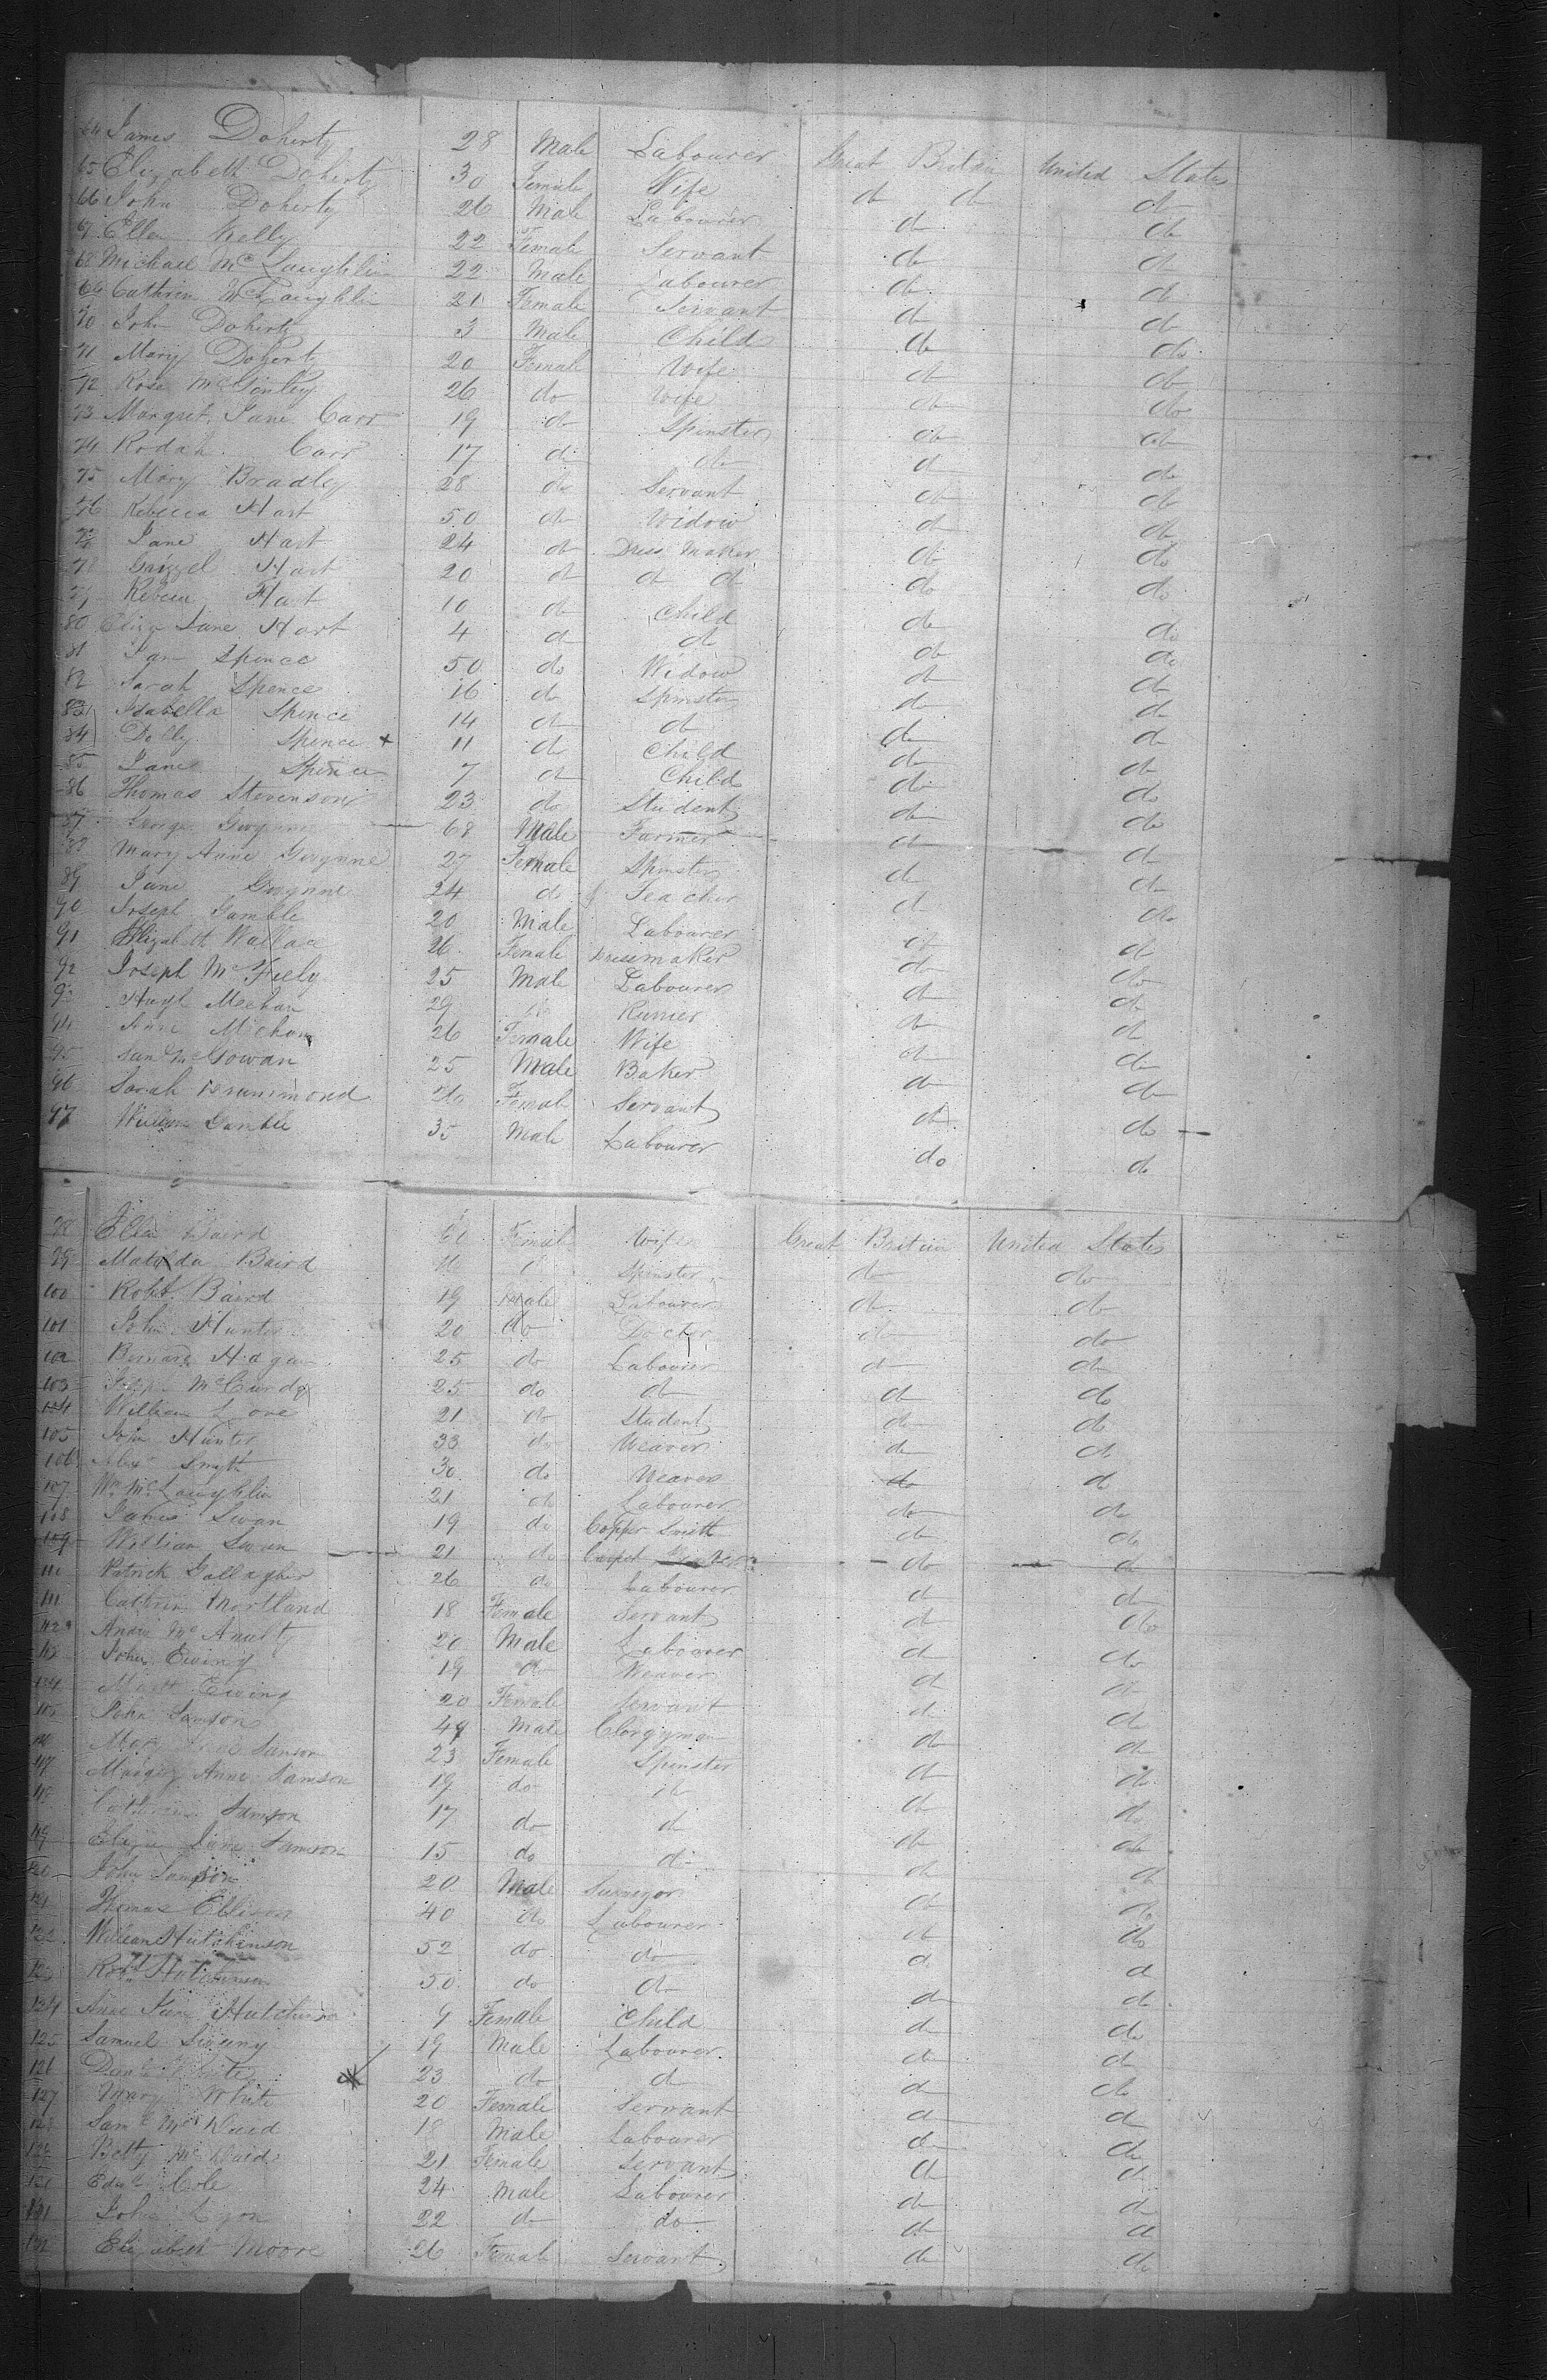 64 James Doherty 28 Male Labourer Great Britain United States
65 Elizabeth Doherty 30 Female Wife do do do
66 John Doherty 26 Male Labourer do do
67 Ellen Kelly 22 Female Servant do do
68 Michael McLaughlin 22 Male Labourer do do
69 Cathrin McLaughlin 21 Female Servant do do
70 John Doherty 3 Male Child do do
71 Mary Doherty 20 Female Wife do do
72 Rose McGinley 26 do Wife do do
73 Margret Jane Carr 19 do Spinster do do
74 Rodah Carr 17 do do do do
75 Mary Bradley 28 do Servant do do
76 Rebecca Hart 50 do Widow do do
77 Jane Hart 24 do Dress Maker do do
78 Grizzel Hart 20 do do do do do
79 Rebecca Hart 10 do Child do do
80 Eliza Jane Hart 4 do do do do
81 Jane Spence 50 do Widow do do
82 Sarah Spence 16 do Spinster do do
83 Isabella Spence 14 do do do do
84 Dolly Spence + 11 do Child do do
85 Jane Spence 7 do Child do do
86 Thomas Stevenson 23 do Student do do
87 George Gwynne 68 Male Farmer do do
88 Mary Anne Gwynne 27 Female Spinster do do
89 Jane Gwynne 24 do Teacher do do
90 Joseph Gamble 20 Male Labourer do do
91 Elizabeth Wallace 26 Female Dressmaker do do
92 Joseph McFeely 25 Male Labourer do do
93 Hugh Mechan 29 do do do
94 Anne Michan 26 Female Wife do do
95 McGowan 25 Male Baker do do
96 Sarah Drummond 26 Female Servant do do
97 William Gamble 35 Male Labourer do do
98 Ellen Baird Female Wife Great Britain United States
99 Matilda Baird Spinster do do
100 Robt Baird 19 Male Labourer do do
101 John Hunter 20 do Doctor do do
102 Bernard Hagan 25 do Labourer do do
103 McCurdy 25 do do do do
104 William Love 21 do Student do do
105 John Hunter 33 do Weaver do do
106 Alexr Smyth 30 do Weaver do do
107 Wm McLaughlin 21 do Labourer do do
108 James Swan 19 do Copper Smith do do
109 William Swan 21 do Carpet do do
110 Patrick Gallagher 26 do Labourer do do
111 Cathrin Mortland 18 Female Servant do do
112 Andw McAnulty 20 Male Labourer do do
113 John Ewing 19 do Weaver do do
114 Ewing 20 Female Servant do do
115 John Samson 49 Male Clergyman do do
116 Mary Samson 23 Female Spinster do do
117 Margry Anne Samson 19 do do do do
118 Catherine Samson 17 do do do do
119 Eliza Jane Samson 15 do do do do
120 John Samson 20 Male Surveyor do do
121 Thomas Ellison 40 do Labourer do do
122 William Hutchinson 52 do do do do
123 Robt Hutchinson 50 do do do do
124 Anne Jane Hutchinson 9 Female Child do do
125 Samuel Sweeny 19 Male Labourer do do
126 Danl White 23 do do do do
127 Mary White 20 Female Servant do do
128 Saml McDaid 18 Male Labourer do do
129 Betty McDaid 21 Female Servant do do
Edwd Cole 24 Male Labourer do do
131 John Lyon 22 do do do do
132 Elizabeth Moore 26 Female Servant do do